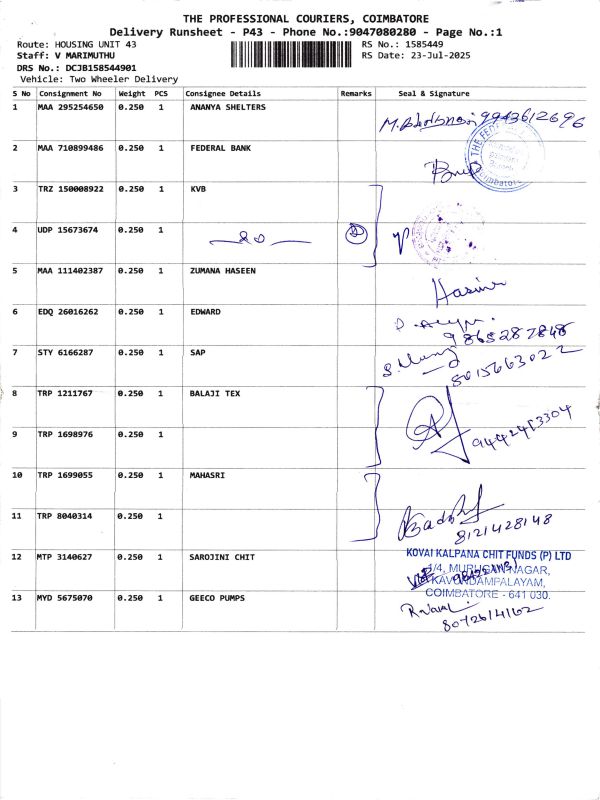 THE PROFESSIONAL COURIERS, COIMBATORE
Delivery Runsheet - P43 - Phone No.:9047080280 - Page No.:1
Route: HOUSING UNIT 43 RS No.: 1585449
Staff: V MARIMUTHU RS Date: 23-Jul-2025
DRS No.: DCJB158544901
Vehicle: Two Wheeler Delivery
S No Consignment No Weight PCS Consignee Details Remarks Seal & Signature
1 MAA 295254650 0.250 1 ANANYA SHELTERS
9943612696
2 MAA 710899486 0.250 1 FEDERAL BANK
THE FED
Coimbatore
3 TRZ 150008922 0.250 1 KVB
4 UDP 15673674 0.250 1
5 MAA 111402387 0.250 1 ZUMANA HASEEN
6 EDQ 26016262 0.250 1 EDWARD
9865287848
7 STY 6166287 0.250 1 SAP
8015663022
8 TRP 1211767 0.250 1 BALAJI TEX
9 TRP 1698976 0.250 1
10 TRP 1699055 0.250 1 MAHASRI
11 TRP 8040314 0.250 1
8121428148
12 MTP 3140627 0.250 1 SAROJINI CHIT
KOVAI KALPANA CHIT FUNDS (P) LTD
1/4, MURUGAN NAGAR,
KAVUNDAMPALAYAM,
COIMBATORE - 641 030.
13 MYD 5675070 0.250 1 GEECO PUMPS